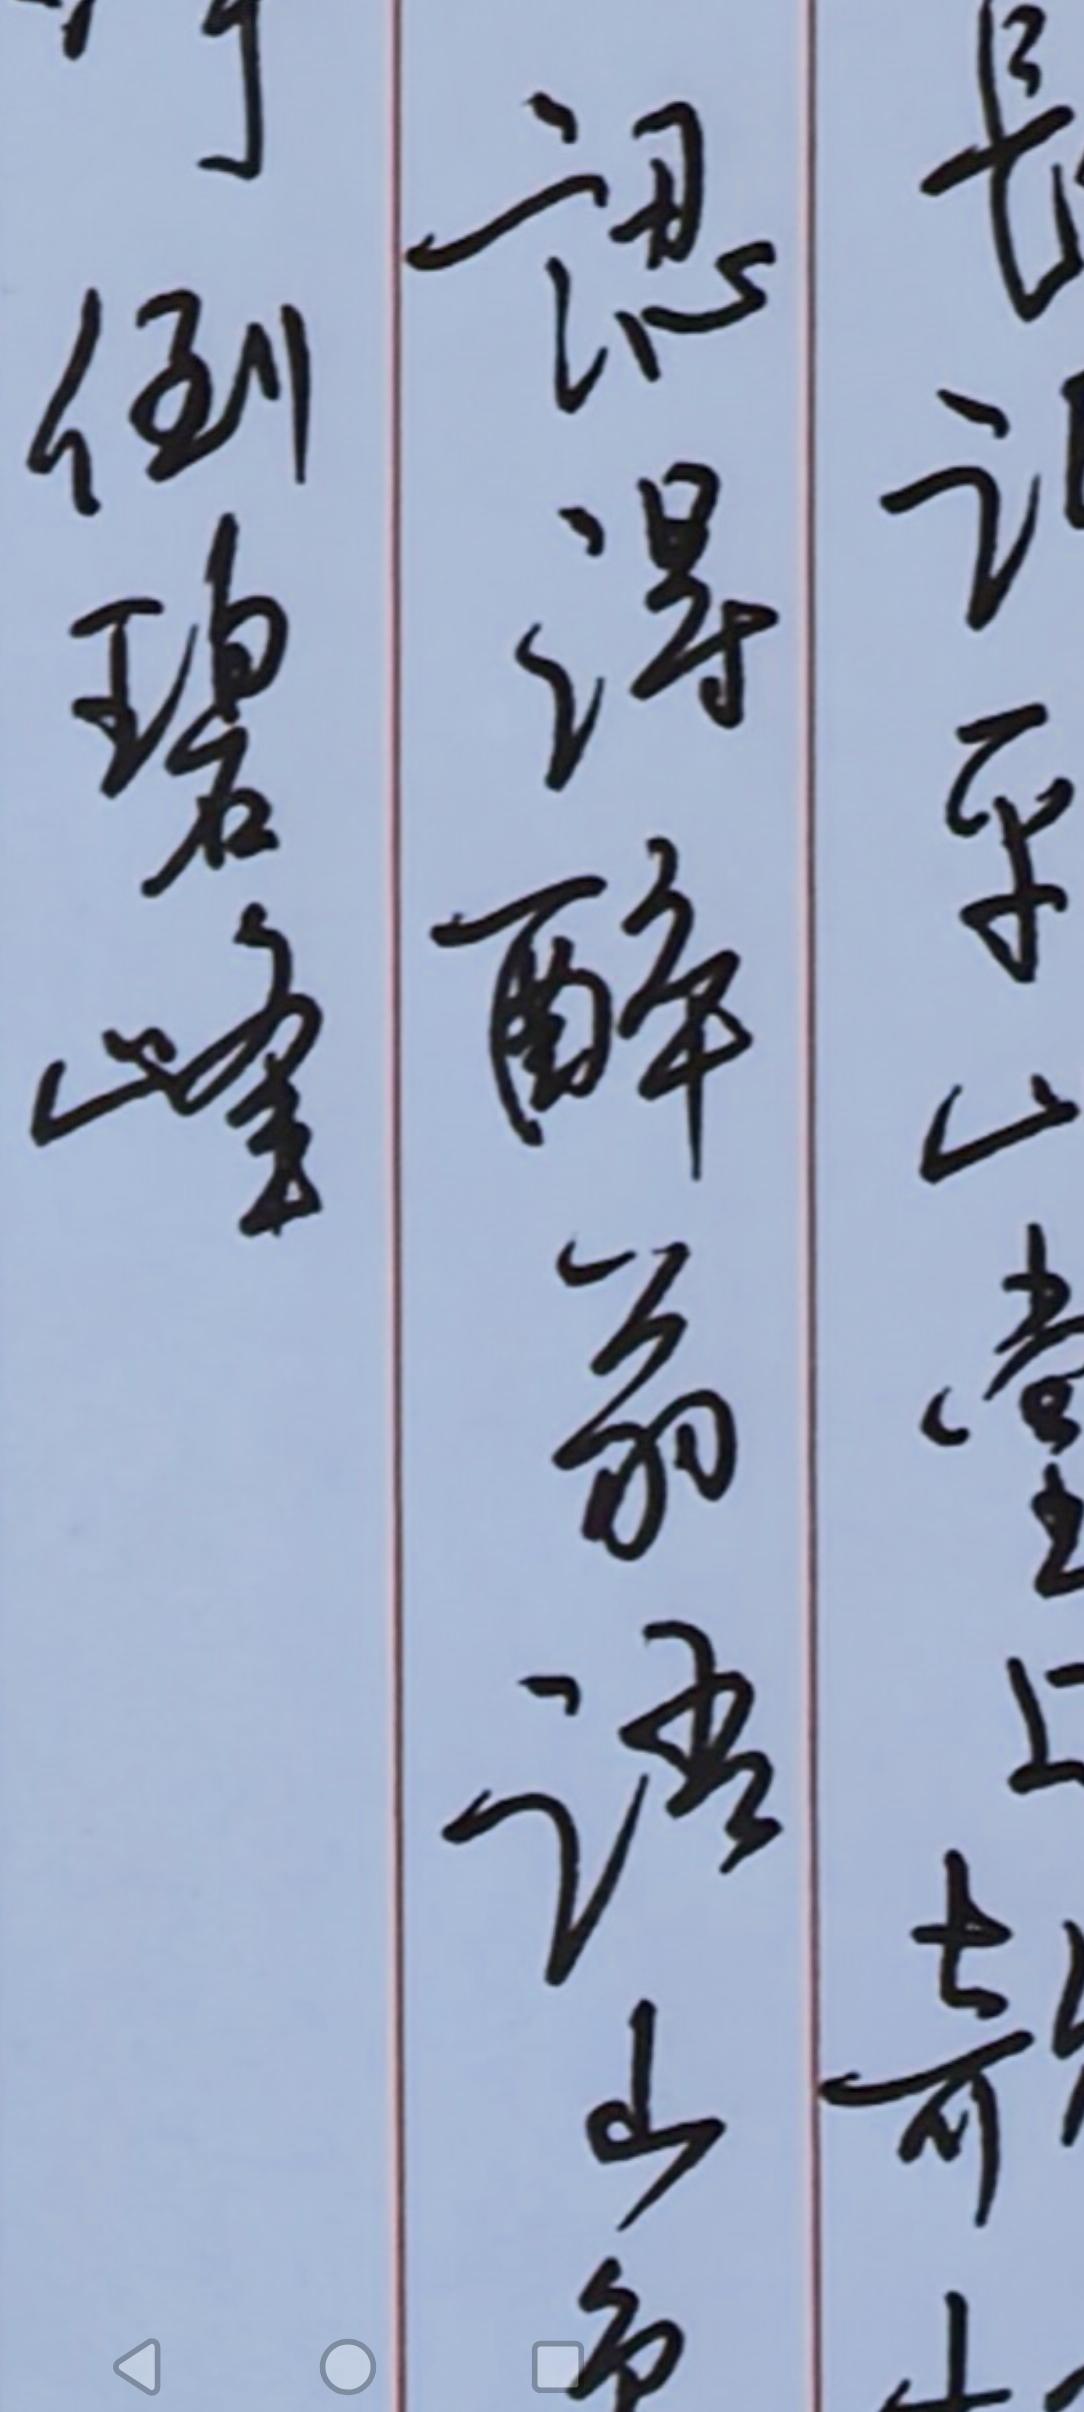 長記平山堂上欹
認得醉翁語山色
倒碧峰